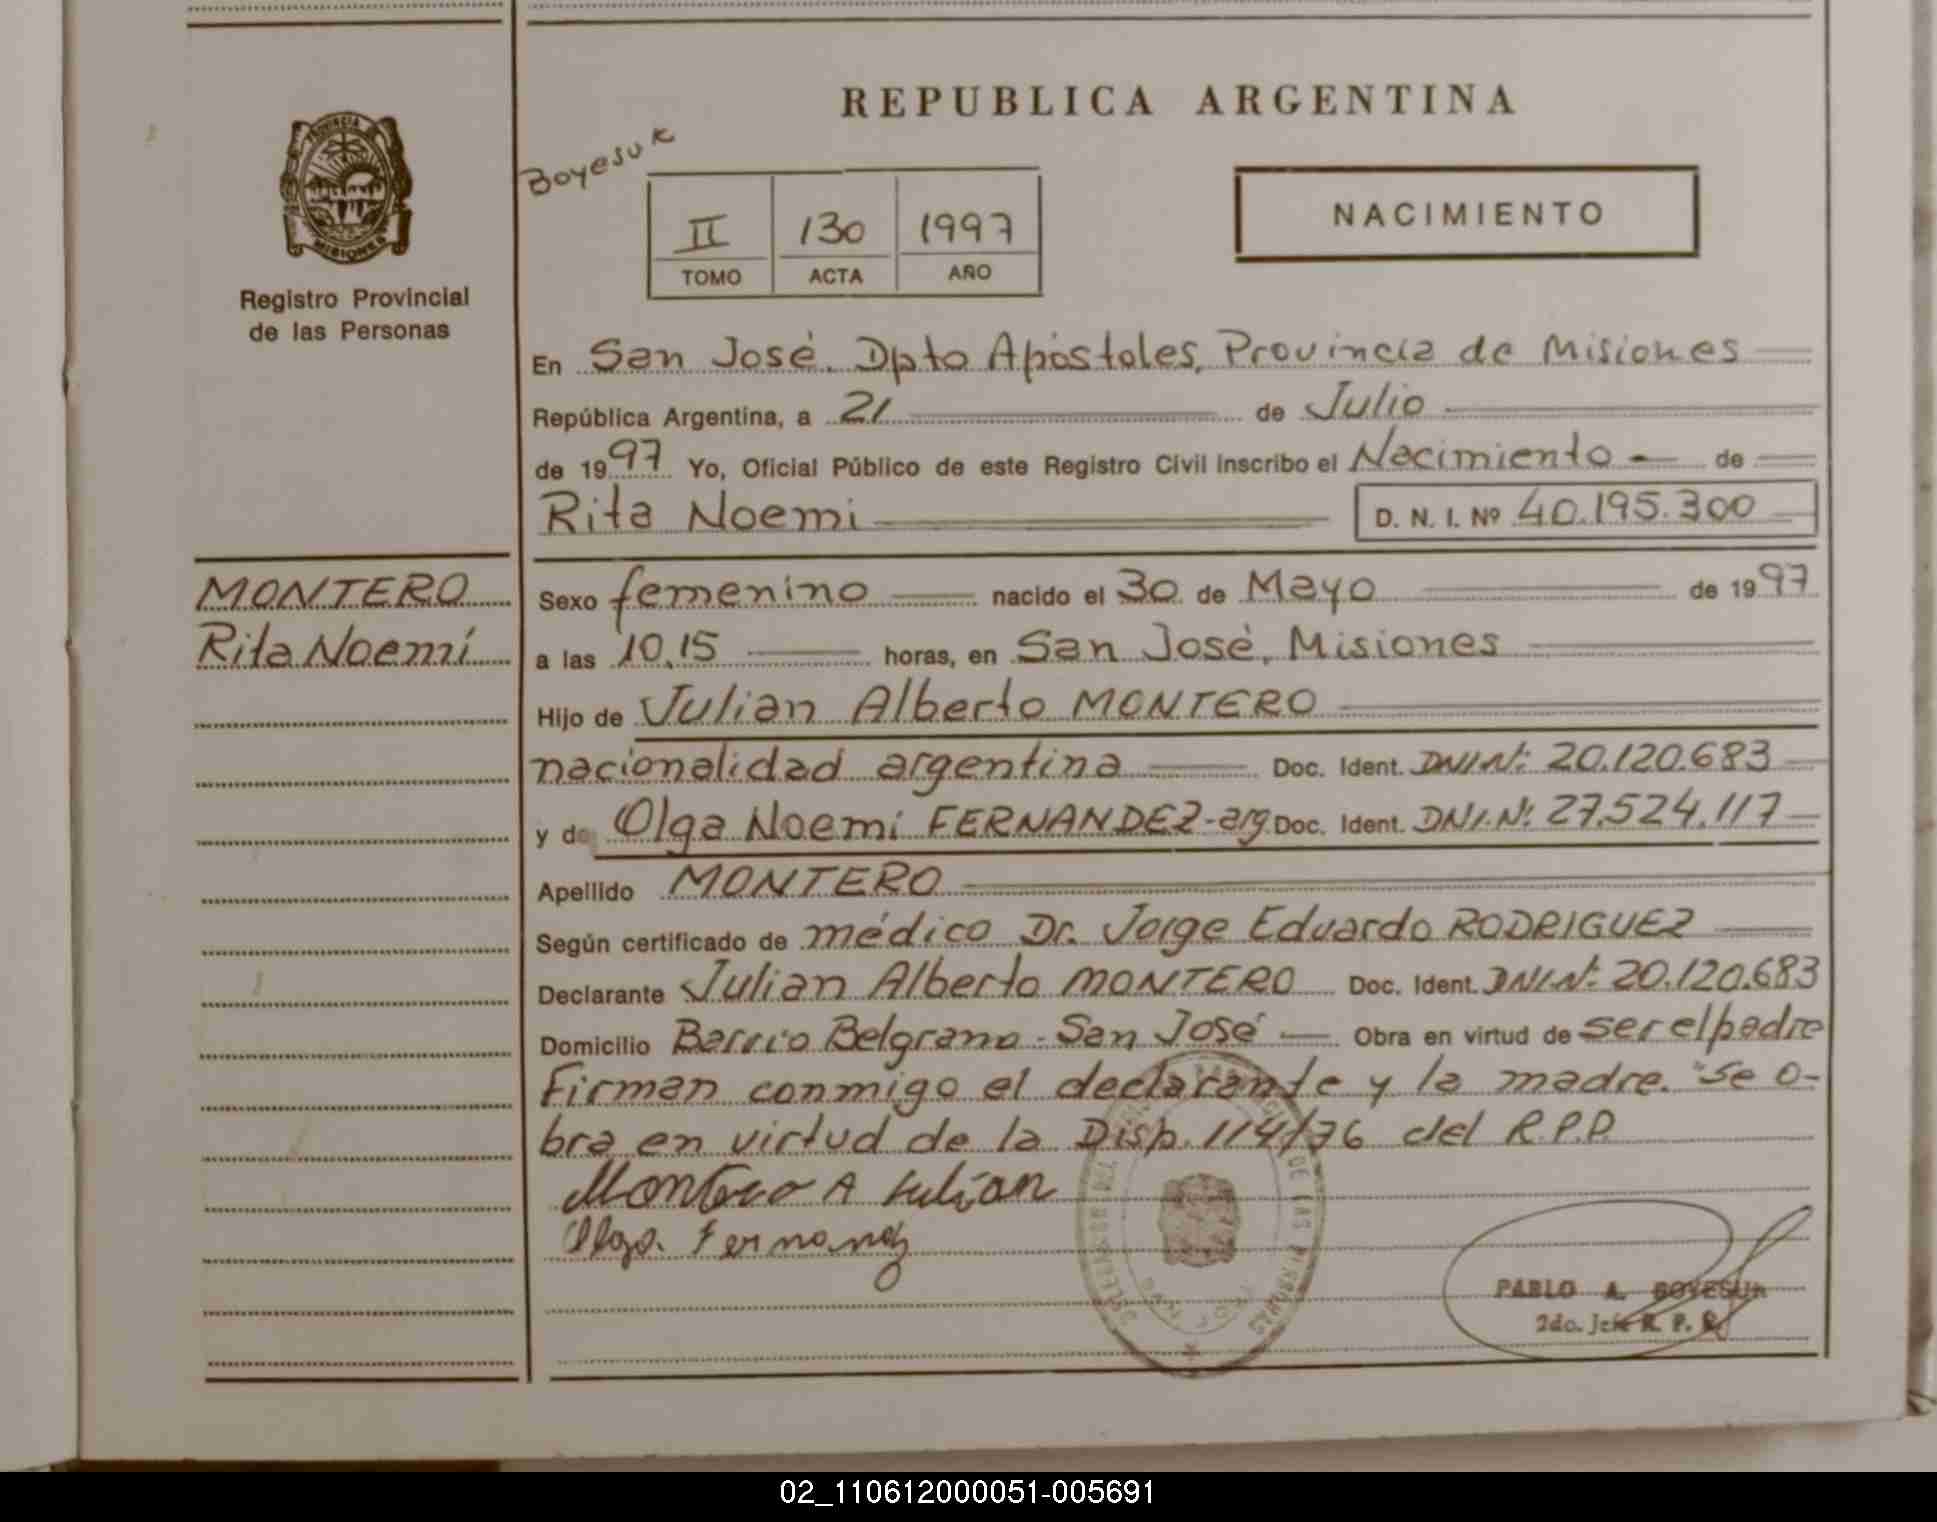 REPUBLICA ARGENTINA
Boyesuk
PROVINCIA DE
MISIONES
Registro Provincial
de las Personas
II 130 1997
TOMO ACTA AÑO
NACIMIENTO
En San José. Dpto Apóstoles, Provincia de Misiones
República Argentina, a 21 de Julio
de 1997 Yo, Oficial Público de este Registro Civil inscribo el Nacimiento - de
Rita Noemi D. N. I. Nº 40.195.300
MONTERO
Rita Noemí
Sexo femenino nacido el 30 de Mayo de 1997
a las 10,15 horas, en San José, Misiones
Hijo de Julian Alberto MONTERO
nacionalidad argentina Doc. Ident. DNI.Nº: 20.120.683
y de Olga Noemi FERNANDEZ-arg Doc. Ident. DNI.Nº: 27.524.117
Apellido MONTERO
Según certificado de médico Dr. Jorge Eduardo RODRIGUEZ
Declarante Julian Alberto MONTERO Doc. Ident. DNI.Nº: 20.120.683
Domicilio Barrio Belgrano - San José Obra en virtud de ser el padre
Firman conmigo el declarante y la madre. "Se o-
bra en virtud de la Disp. 114/76 del R.P.P.
Montero A Julian
Olga. Fernandz
DE LAS PERSONAS
PABLO A. BOYESUK
2do. Jefe R. P. P.
02_110612000051-005691